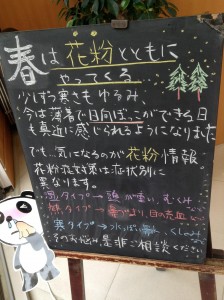 春は花粉とともに
やってくる
少しずつ寒さもゆるみ
今は薄着で日向ぼっこができる日
も真近に感じられるようになりました
でも…気になるのが花粉情報
花粉症対策は症状別に
異なります。
湿タイプ→頭が重い、むくみ
熱タイプ→鼻づまり、目の充血
寒タイプ→水っぽい鼻
その悩み是非ご相談ください